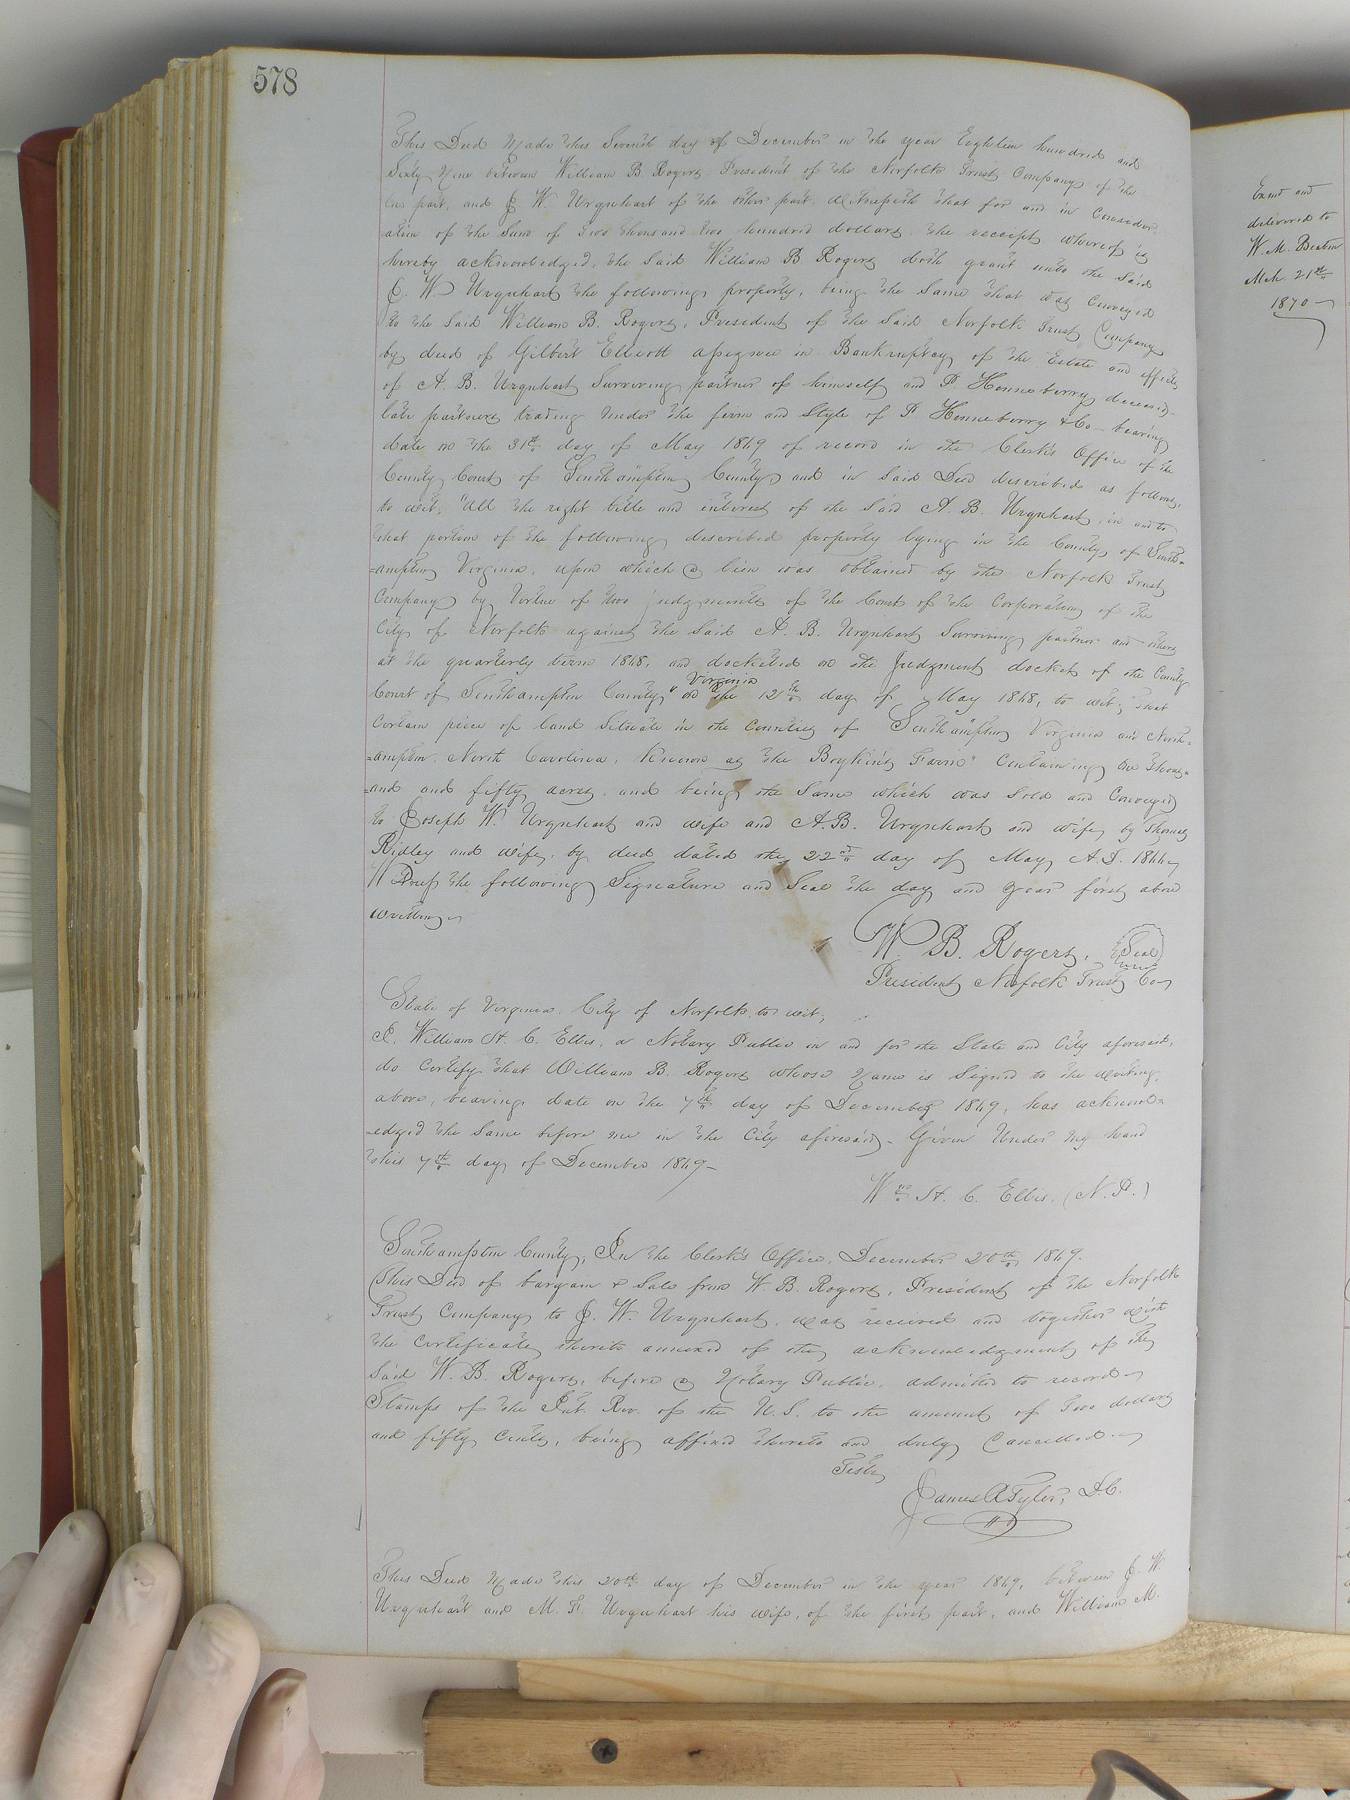 578
This Deed Made this Seventh day of December in the year Eighteen hundred and
Sixty Nine between William B Rogers President of the Norfolk Trust Company of the
one part, and J. W Urquhart of the other part. Witnesseth that for and in Consider-
ation of the Sum of Two thousand two hundred dollars. the receipt whereof is
hereby acknowledged, the said William B Rogers doth grant unto the said
J. W Urquhart the following property, being the Same that was Conveyed
to the Said William B. Rogers, President of the Said Norfolk Trust Company
by deed of Gilbert Elliott assignee in Bankruptcy of the Estate and effects
of A. B. Urquhart Surviving partner of himself and P. Henneberry deceased-
late partners trading under the firm and Style of P Henneberry & Co- bearing
date on the 31st day of May 1869 of record in the Clerk's Office of the
County Court of Southampton County and in Said Deed described as follows,
to wit, "All the right title and interest of the Said A. B. Urquhart, in and to
that portion of the following described property lying in the County of South-
=ampton Virginia, upon which a lien was obtained by the Norfolk Trust
Company by Virtue of two judgments of the Court of the Corporation of the
City of Norfolk against the Said A. B. Urquhart Surviving partner and others
at the quarterly term 1868, and docketed on the Judgment docket of the County
Virginia
Court of Southampton County" on the 12th day of May 1868, to wit; That
Certain piece of land Situate in the Counties of Southampton Virginia and North-
=ampton, North Carolina, Known as the Boykin's Farm" Containing One Thous-
=and and fifty acres, and being the Same which was Sold and Conveyed
to Joseph W. Urquhart and wife and A. B. Urquhart and wife by Thomas
Ridley and wife, by deed dated the 22nd day of May A.D. 1866
Witness the following Signature and Seal the day and year first above
written
W. B. Rogers, (Seal)
President Norfolk Trust Co
State of Virginia, City of Norfolk to wit;
I, William St. C. Ellis, a Notary Public in and for the State and City aforesaid,
do Certify that William B. Rogers whose Name is Signed to the writing
above, bearing date on the 7th day of December 1869, has acknowl-
=edged the Same before me in the City aforesaid- Given Under my hand
this 7th day of December 1869-
Wm St. C. Ellis. (N. P.)
Southampton County, In the Clerk's Office, December 20th 1869.
This Deed of bargain & Sale from W. B. Rogers, President of the Norfolk
Trust Company to J. W. Urquhart, was received and together with
the Certificate thereto annexed of the acknowledgment of the
Said W. B. Rogers, before a Notary Public, admitted to record
Stamps of the Int. Rev. of the U.S. to the amount of Two dollars
and fifty Cents, being affixed thereto and duly Cancelled.
Teste
James R Tyler, D.C.
This Deed Made this 20th day of December in the year 1869, between J. W.
Urquhart and M. F. Urquhart his wife, of the first part, and William M.
Exmd and
delivered to
W. M. Beaton
Mch 21st
1870